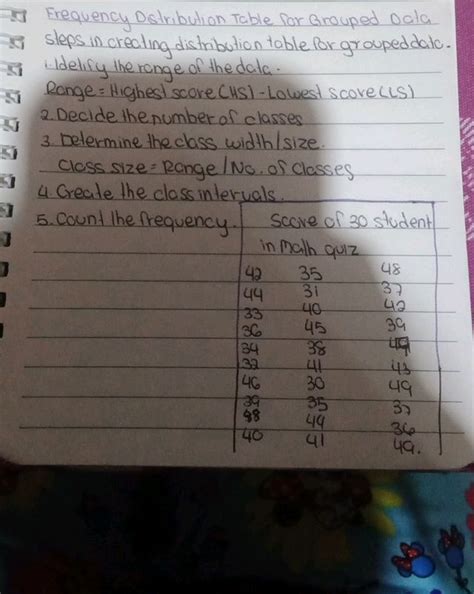 Frequency Distribution Table for Grouped Data
steps in creating distribution table for grouped data.
1. Idetify the range of the data.
Range = Highest score (HS) - Lowest score (LS)
2. Decide the number of classes
3. Determine the class width/size.
Class size = Range / No. of Classes
4. Create the class intervals.
5. Count the frequency.
Score of 30 student
in math quiz
42 35 48
44 31 37
33 40 42
36 45 39
34 38
32 41 43
46 30 49
39 35
38 44
40 41 36
49.